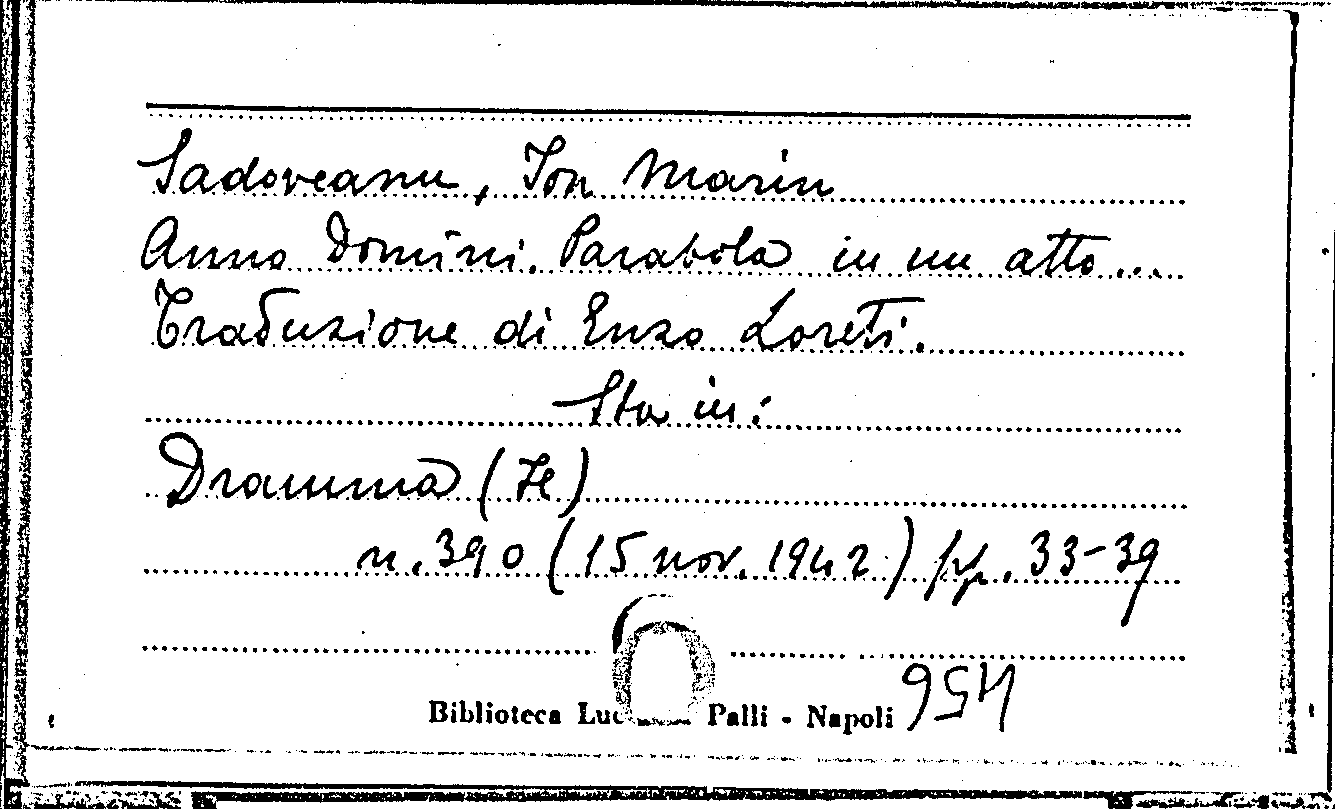 Sadoveanu, Ion Marin
Anno Domini. Parabola in un atto...
Traduzione di Enzo Loreti.
Sta in:
Dramma (Il)
n. 390 (15 nov. 1942) pp. 33-39
Biblioteca Luc Palli - Napoli